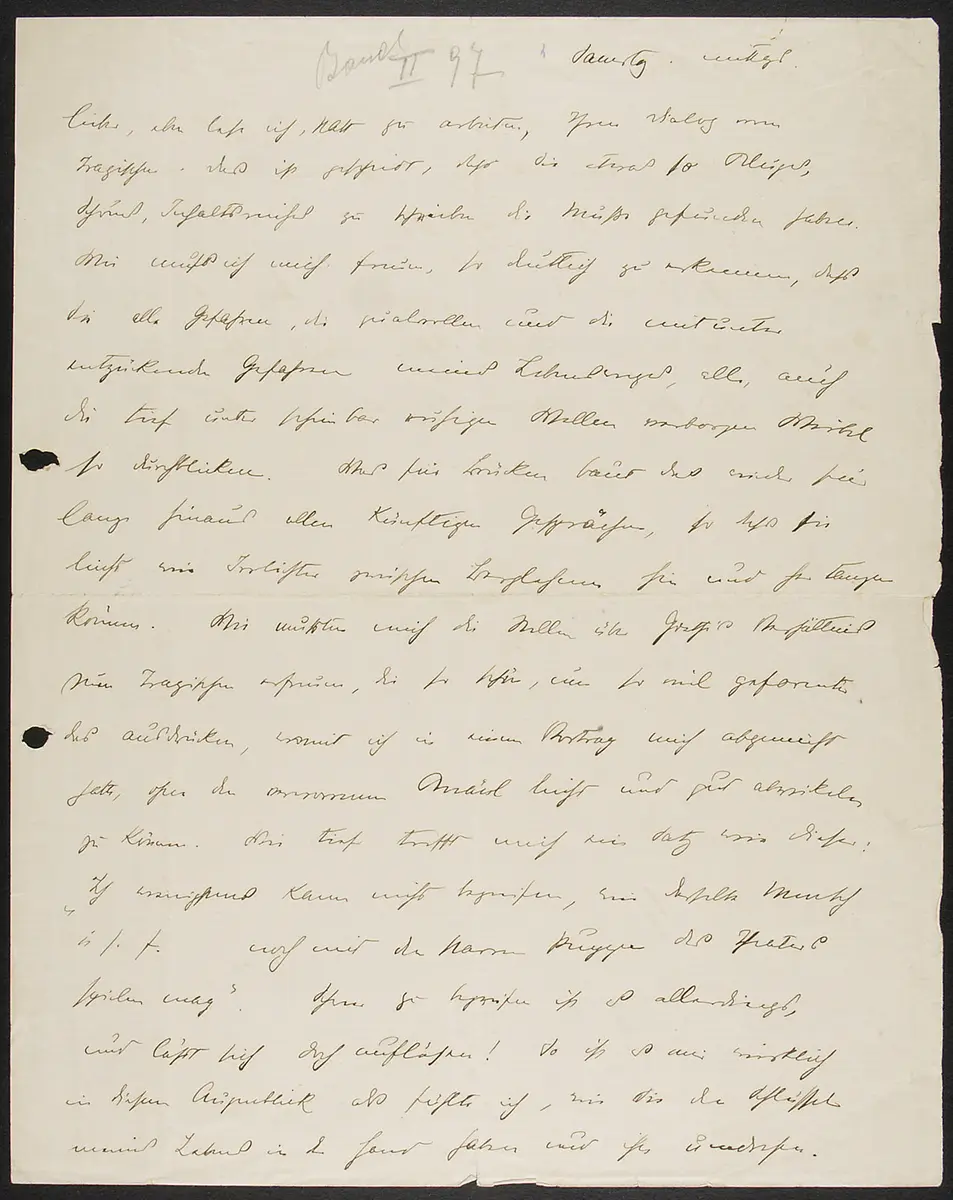 Band II 97
Samstg. mittgs.
lieber, eben lese ich, statt zu arbeiten, Ihren Dialog vom
Tragischen. Das ist gescheidt, dass Sie etwas so Kluges,
Schönes, Inhaltsreiches zu schreiben die Musse gefunden haben.
Wie muss ich mich freuen, so deutlich zu erkennen, dass
Sie alle Gefahren, die qualvollen und die mitunter
entzückenden Gefahren meines Lebensweges, alle, auch
die tief unter scheinbar ruhigen Wellen verborgen Wirbel
so durchblicken. Was für Brücken baut das wieder für
lange hinaus allen künftigen Gesprächen, so dass sie
leicht wie Irrlichter zwischen hin und her tanzen
können. Wie mussten mich die Stellen über Goethes Verhältnis
zum Tragischen erfreuen, die so schön, um so viel geformter
das ausdrücken, womit ich in einem Vortrag mich abgemüht
hatte, ohne den verworrenen Knäuel leicht und gut abwickeln
zu können. Wie tief trifft mich ein Satz wie dieser:
„Ich wenigstens kann nicht begreifen, wie derselbe Mensch
u. s. f. noch mit den Narren Puppen des Theaters
spielen mag". Schwer zu begreifen ist es allerdings,
und lässt sich doch auflösen! So ist es mir wirklich
in diesem Augenblick als fühlte ich, wie Sie den Schlüssel
meines Lebens in der Hand haben und ihn umdrehen.